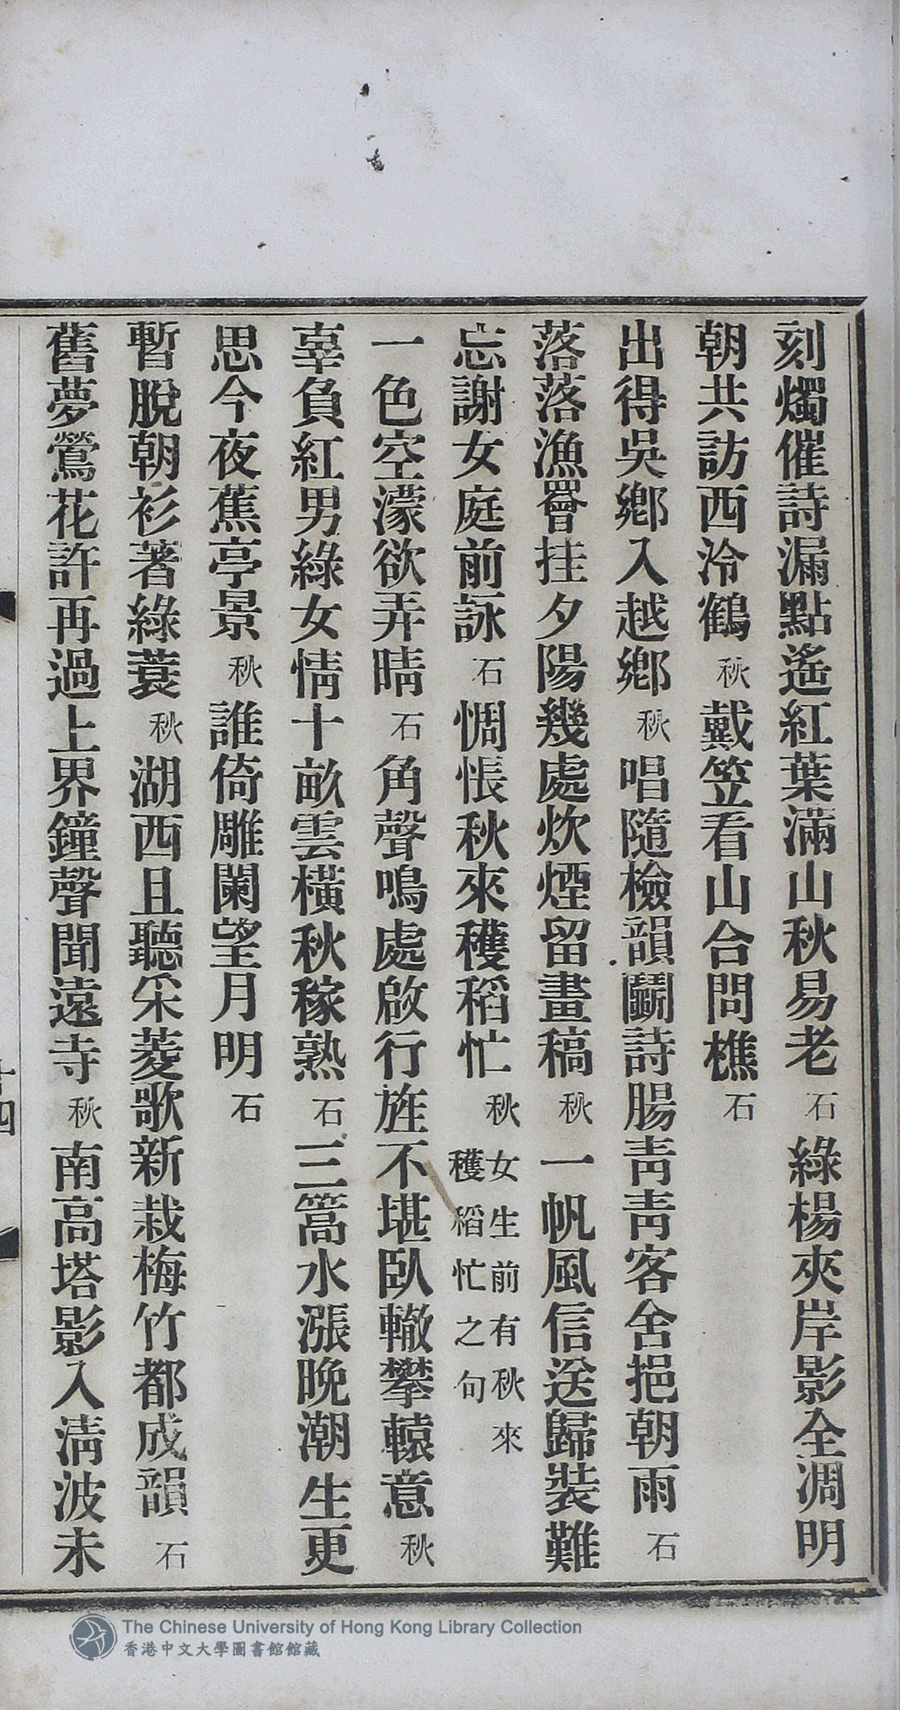 刻燭催詩漏點遙紅葉滿山秋易老石綠楊夾岸影全凋明
朝共訪西泠鶴秋戴笠看山合問樵石
出得吳鄉入越鄉秋唱隨檢韻鬭詩腸靑靑客舍挹朝雨石
落落漁罾挂夕陽幾處炊煙留畫稿秋一帆風信送歸裝難
忘謝女庭前詠石惆悵秋來穫稻忙秋女生前有秋來穫稻忙之句
一色空濛欲弄晴石角聲鳴處啟行旌不堪臥轍攀轅意秋
辜負紅男綠女情十畝雲橫秋稼熟石三篙水漲晚潮生更
思今夜蕉亭景秋誰倚雕闌望月明石
暫脫朝衫著綠蓑秋湖西且聽采菱歌新栽梅竹都成韻石
舊夢鶯花許再過上界鐘聲聞遠寺秋南高塔影入淸波未
十四
The Chinese University of Hong Kong Library Collection
香港中文大學圖書館館藏